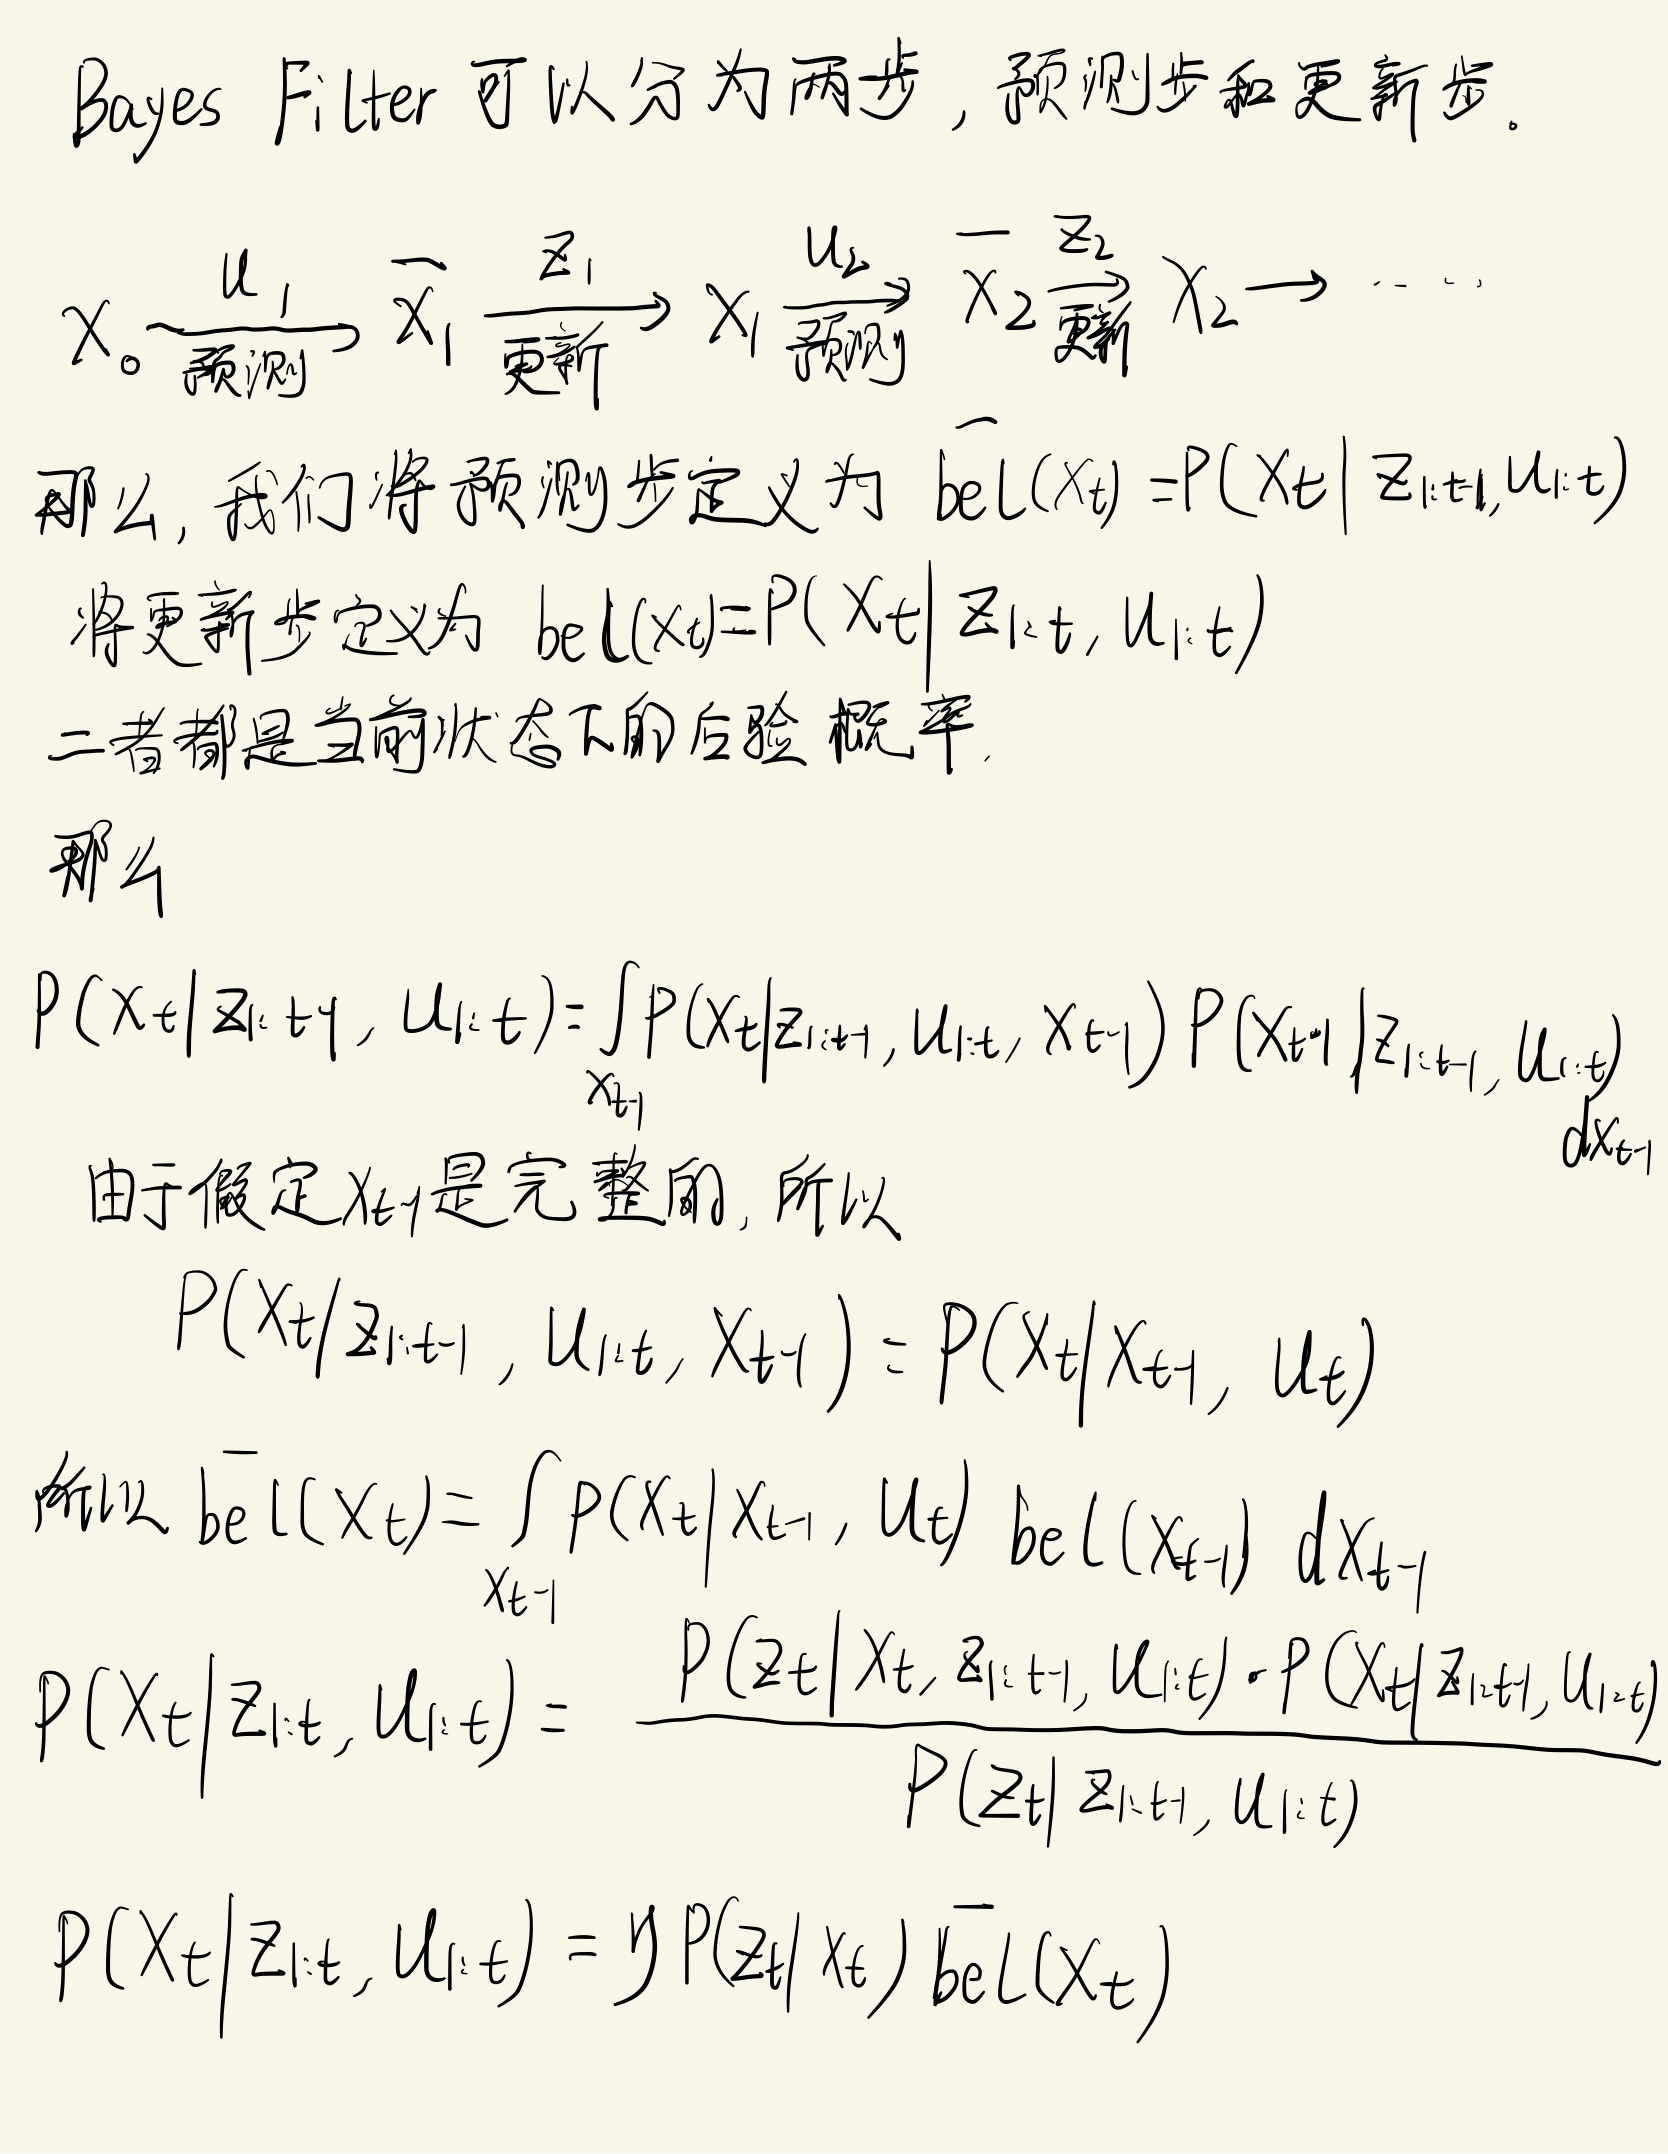 Bayes Filter 可以分为两步，预测步和更新步。
X₀ —u₁ 预测→ X̄₁ —z₁ 更新→ X₁ —u₂ 预测→ X̄₂ —z₂ 更新→ X₂ → ……
那么，我们将预测步定义为 b̄el(Xt) = P(Xt | z1:t-1, u1:t)
将更新步定义为 bel(Xt) = P(Xt | z1:t, u1:t)
二者都是当前状态下的后验概率.
那么
P(Xt | z1:t-1, u1:t) = ∫xt-1 P(Xt | z1:t-1, u1:t, Xt-1) P(Xt-1 | z1:t-1, u1:t) dXt-1
由于假定Xt-1是完整的, 所以
P(Xt | z1:t-1, u1:t, Xt-1) = P(Xt | Xt-1, ut)
所以 b̄el(Xt) = ∫xt-1 P(Xt | Xt-1, ut) bel(Xt-1) dXt-1
P(Xt | z1:t, u1:t) = P(zt | Xt, z1:t-1, u1:t) · P(Xt | z1:t-1, u1:t) / P(zt | z1:t-1, u1:t)
P(Xt | z1:t, u1:t) = η P(zt | Xt) b̄el(Xt)